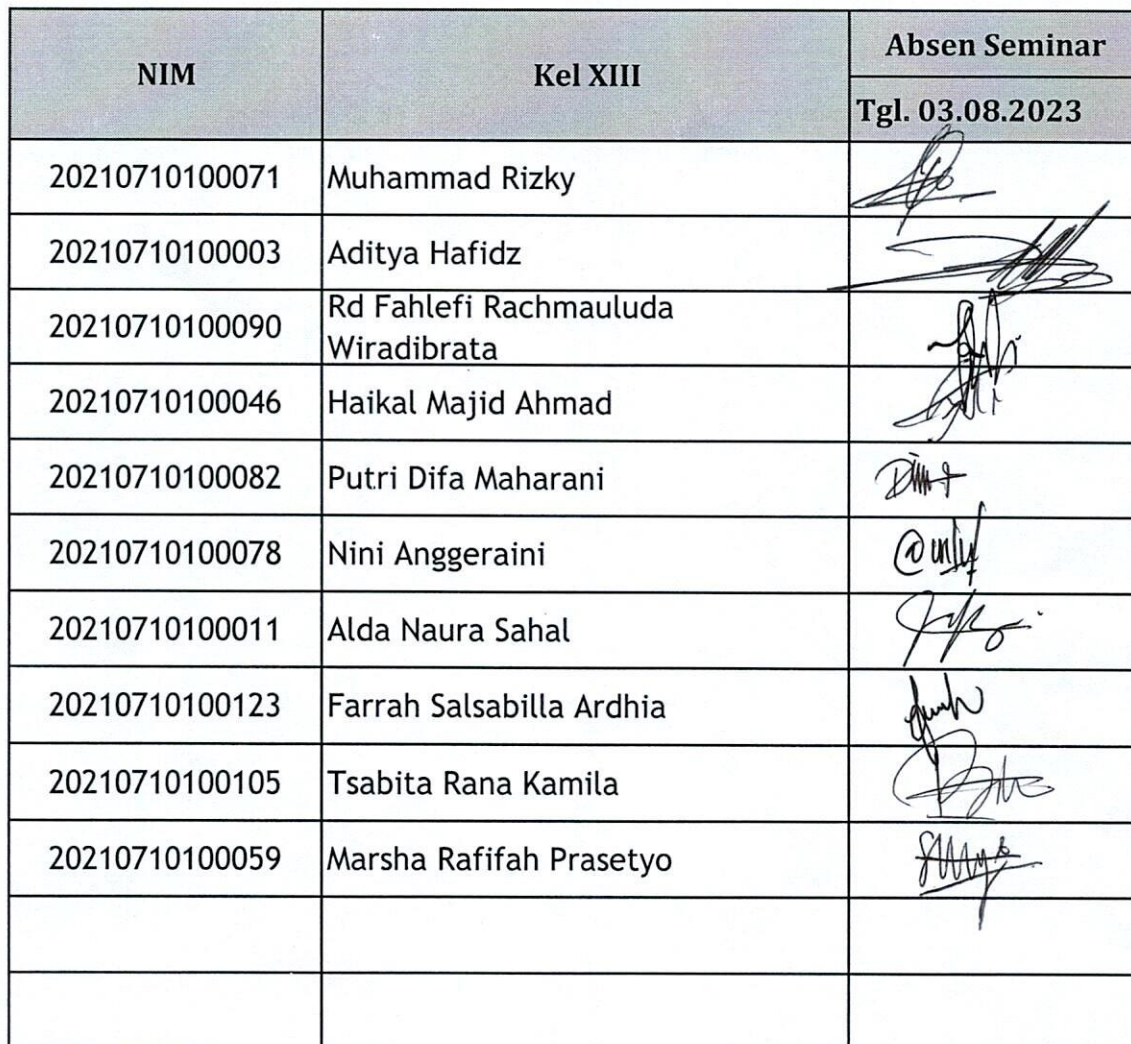 NIM Kel XIII Absen Seminar
Tgl. 03.08.2023
20210710100071 Muhammad Rizky
20210710100003 Aditya Hafidz
20210710100090 Rd Fahlefi Rachmauluda
Wiradibrata
20210710100046 Haikal Majid Ahmad
20210710100082 Putri Difa Maharani
20210710100078 Nini Anggeraini
20210710100011 Alda Naura Sahal
20210710100123 Farrah Salsabilla Ardhia
20210710100105 Tsabita Rana Kamila
20210710100059 Marsha Rafifah Prasetyo